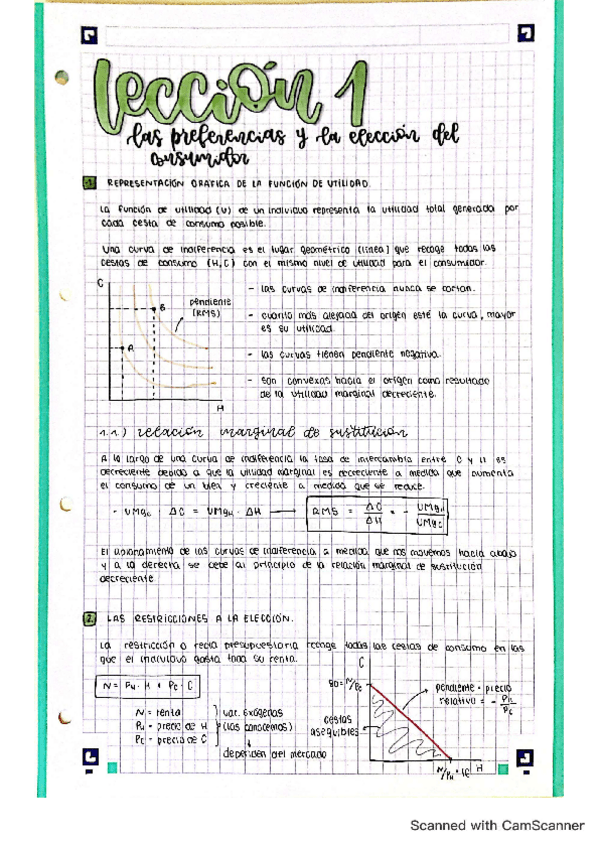 lección 1
las preferencias y la elección del
consumidor
1. REPRESENTACIÓN GRÁFICA DE LA FUNCIÓN DE UTILIDAD.
La función de utilidad (U) de un individuo representa la utilidad total generada por
cada cesta de consumo posible.
Una curva de indiferencia es el lugar geométrico (línea) que recoge todas las
cestas de consumo (H,C) con el mismo nivel de utilidad para el consumidor.
C
B
A
H
pendiente
(RMS)
- las curvas de indiferencia nunca se cortan.
- cuanto más alejada del origen esté la curva, mayor
es su utilidad.
- las curvas tienen pendiente negativa.
- son convexas hacia el origen como resultado
de la utilidad marginal decreciente.
1.1) relación marginal de sustitución
A lo largo de una curva de indiferencia la tasa de intercambio entre C y H es
decreciente debido a que la utilidad marginal es decreciente a medida que aumenta
el consumo de un bien y creciente a medida que se reduce.
- UMgc · ΔC = UMgH · ΔH → RMS = ΔC/ΔH = - UMgH/UMgC
El aplanamiento de las curvas de indiferencia a medida que nos movemos hacia abajo
y a la derecha se debe al principio de la relación marginal de sustitución
decreciente.
2. LAS RESTRICCIONES A LA ELECCIÓN.
La restricción o recta presupuestaria recoge todas las cestas de consumo en las
que el individuo gasta toda su renta.
N = PH · H + PC · C
N = renta
PH = precio de H
PC = precio de C
var. exógenas
(las conocemos)
dependen del mercado
C
80 = N/PC
cestas
asequibles
pendiente = precio
relativo = - PH/PC
N/PH = 16
H
Scanned with CamScanner